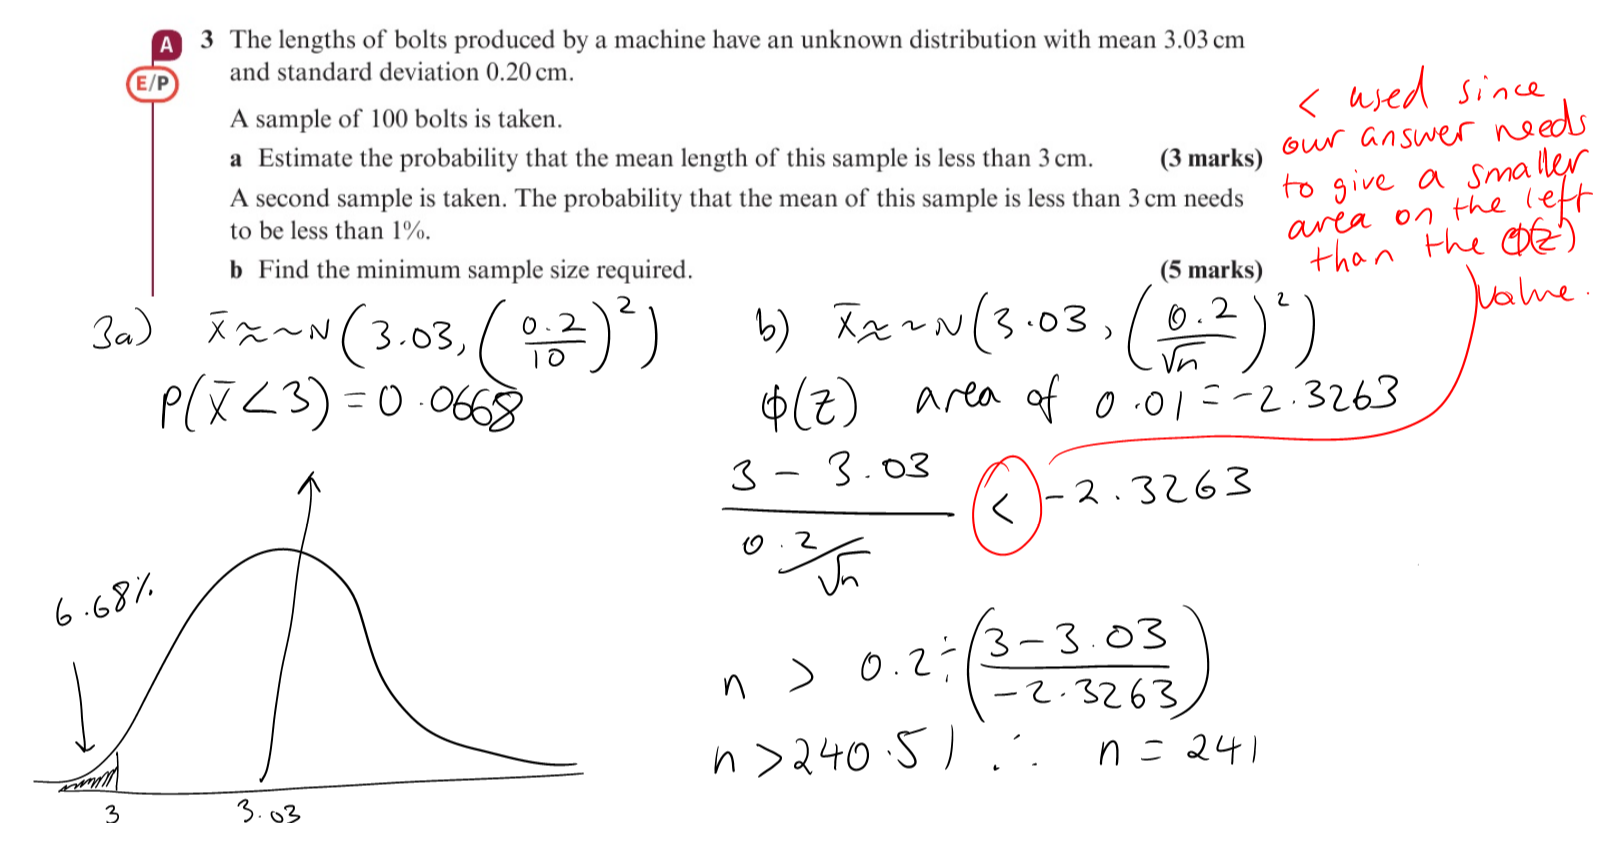 A 3 The lengths of bolts produced by a machine have an unknown distribution with mean 3.03 cm
E/P and standard deviation 0.20 cm.
A sample of 100 bolts is taken.
a Estimate the probability that the mean length of this sample is less than 3 cm. (3 marks)
A second sample is taken. The probability that the mean of this sample is less than 3 cm needs
to be less than 1%.
b Find the minimum sample size required. (5 marks)
< used since
our answer needs
to give a smaller
area on the left
than the Φ(z)
value.
3a) X̄ ≈~N(3.03, (0.2/10)²)
P(X̄<3) = 0.0668
6.68%
3
3.03
b) X̄ ≈~N(3.03, (0.2/√n)²)
Φ(z) area of 0.01 = -2.3263
3 - 3.03 < -2.3263
0.2/√n
n > 0.2 ÷ (3-3.03/-2.3263)
n > 240.51 ∴ n = 241